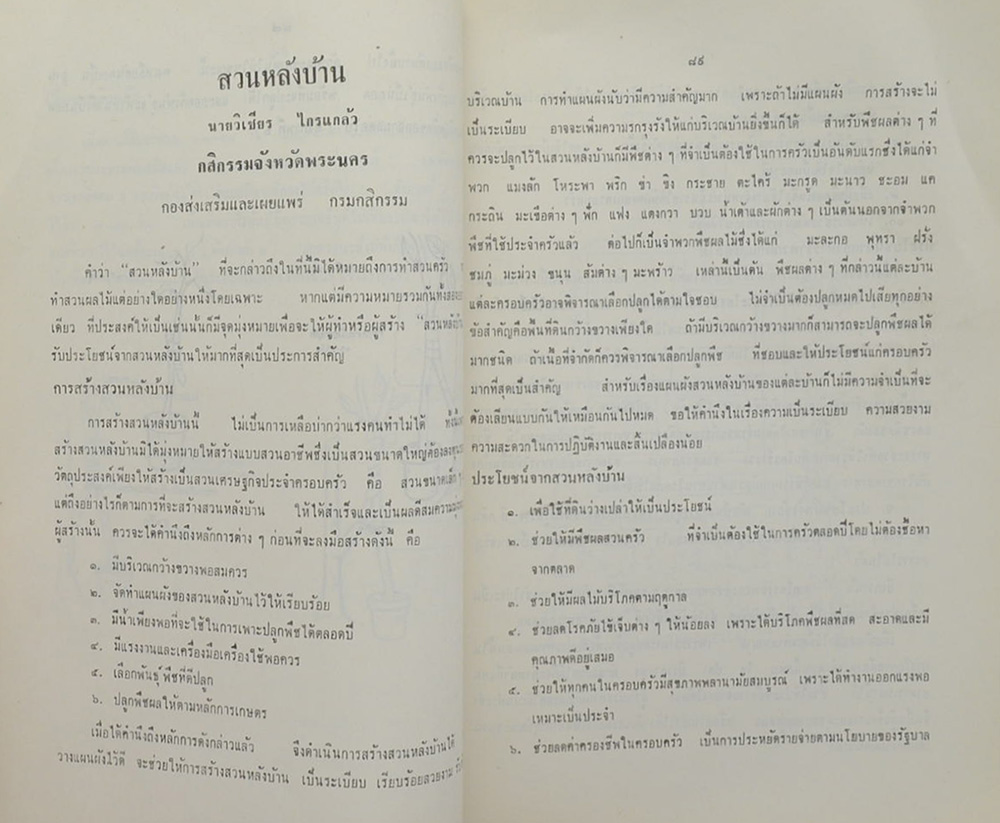 สวนหลังบ้าน
นายวิเชียร ไกรแกล้ว
กสิกรรมจังหวัดพระนคร
กองส่งเสริมและเผยแพร่ กรมกสิกรรม
คำว่า “สวนหลังบ้าน” ที่จะกล่าวถึงในที่นี้มิได้หมายถึงการทำสวนครัว
ทำสวนผลไม้แต่อย่างใดอย่างหนึ่งโดยเฉพาะ หากแต่มีความหมายรวมกันทั้งสอง
เดียว ที่ประสงค์ให้เป็นเช่นนั้นก็มีจุดมุ่งหมายเพื่อจะให้ผู้ทำหรือผู้สร้าง “สวนหลังบ้าน
รับประโยชน์จากสวนหลังบ้านให้มากที่สุดเป็นประการสำคัญ
การสร้างสวนหลังบ้าน
การสร้างสวนหลังบ้านนี้ ไม่เป็นการเหลือบ่ากว่าแรงคนทำไม่ได้ ทั้งนี้
สร้างสวนหลังบ้านมิได้มุ่งหมายให้สร้างแบบสวนอาชีพซึ่งเป็นสวนขนาดใหญ่ต้องลงทุน
วัตถุประสงค์เพียงให้สร้างเป็นสวนเศรษฐกิจประจำครอบครัว คือ สวนขนาดเล็ก
แต่ถึงอย่างไรก็ตามการที่จะสร้างสวนหลังบ้าน ให้ได้สำเร็จและเป็นผลดีสมความมุ่ง
ผู้สร้างนั้น ควรจะได้คำนึงถึงหลักการต่าง ๆ ก่อนที่จะลงมือสร้างดังนี้ คือ
๑. มีบริเวณกว้างขวางพอสมควร
๒. จัดทำแผนผังของสวนหลังบ้านไว้ให้เรียบร้อย
๓. มีน้ำเพียงพอที่จะใช้ในการเพาะปลูกพืชได้ตลอดปี
๔. มีแรงงานและเครื่องมือเครื่องใช้พอควร
๕. เลือกพันธุ์พืชที่ดีปลูก
๖. ปลูกพืชผลให้ตามหลักการเกษตร
เมื่อได้คำนึงถึงหลักการดังกล่าวแล้ว จึงดำเนินการสร้างสวนหลังบ้านได้
วางแผนผังไว้ดี จะช่วยให้การสร้างสวนหลังบ้าน เป็นระเบียบ เรียบร้อยสวยงาม
๘๙
บริเวณบ้าน การทำแผนผังนับว่ามีความสำคัญมาก เพราะถ้าไม่มีแผนผัง การสร้างจะไม่
เป็นระเบียบ อาจจะเพิ่มความรกรุงรังให้แก่บริเวณบ้านยิ่งขึ้นก็ได้ สำหรับพืชผลต่าง ๆ ที่
ควรจะปลูกไว้ในสวนหลังบ้านก็มีพืชต่าง ๆ ที่จำเป็นต้องใช้ในการครัวเป็นอันดับแรกซึ่งได้แก่จำ
พวก แมงลัก โหระพา พริก ข่า ขิง กระชาย ตะไคร้ มะกรูด มะนาว ชะอม แค
กระถิน มะเขือต่าง ๆ ฟัก แฟง แตงกวา บวบ น้ำเต้าและผักต่าง ๆ เป็นต้นนอกจากจำพวก
พืชที่ใช้ประจำครัวแล้ว ต่อไปก็เป็นจำพวกพืชผลไม้ซึ่งได้แก่ มะละกอ พุทรา ฝรั่ง
ชมภู่ มะม่วง ขนุน ส้มต่าง ๆ มะพร้าว เหล่านี้เป็นต้น พืชผลต่าง ๆ ที่กล่าวนี้แต่ละบ้าน
แต่ละครอบครัวอาจพิจารณาเลือกปลูกได้ตามใจชอบ ไม่จำเป็นต้องปลูกหมดไปเสียทุกอย่าง
ข้อสำคัญคือพื้นที่ดินกว้างขวางเพียงใด ถ้ามีบริเวณกว้างขวางมากก็สามารถจะปลูกพืชผลได้
มากชนิด ถ้าเนื้อที่จำกัดก็ควรพิจารณาเลือกปลูกพืช ที่ชอบและให้ประโยชน์แก่ครอบครัว
มากที่สุดเป็นสำคัญ สำหรับเรื่องแผนผังสวนหลังบ้านของแต่ละบ้านก็ไม่มีความจำเป็นที่จะ
ต้องเลียนแบบกันให้เหมือนกันไปหมด ขอให้คำนึงในเรื่องความเป็นระเบียบ ความสวยงาม
ความสะดวกในการปฏิบัติงานและสิ้นเปลืองน้อย
ประโยชน์จากสวนหลังบ้าน
๑. เพื่อใช้ที่ดินว่างเปล่าให้เป็นประโยชน์
๒. ช่วยให้มีพืชผลสวนครัว ที่จำเป็นต้องใช้ในการครัวตลอดปีโดยไม่ต้องซื้อหา
จากตลาด
๓. ช่วยให้มีผลไม้บริโภคตามฤดูกาล
๔. ช่วยลดโรคภัยไข้เจ็บต่าง ๆ ให้น้อยลง เพราะได้บริโภคพืชผลที่สด สะอาดและมี
คุณภาพดีอยู่เสมอ
๕. ช่วยให้ทุกคนในครอบครัวมีสุขภาพพลานามัยสมบูรณ์ เพราะได้ทำงานออกแรงพอ
เหมาะเป็นประจำ
๖. ช่วยลดค่าครองชีพในครอบครัว เป็นการประหยัดรายจ่ายตามนโยบายของรัฐบาล